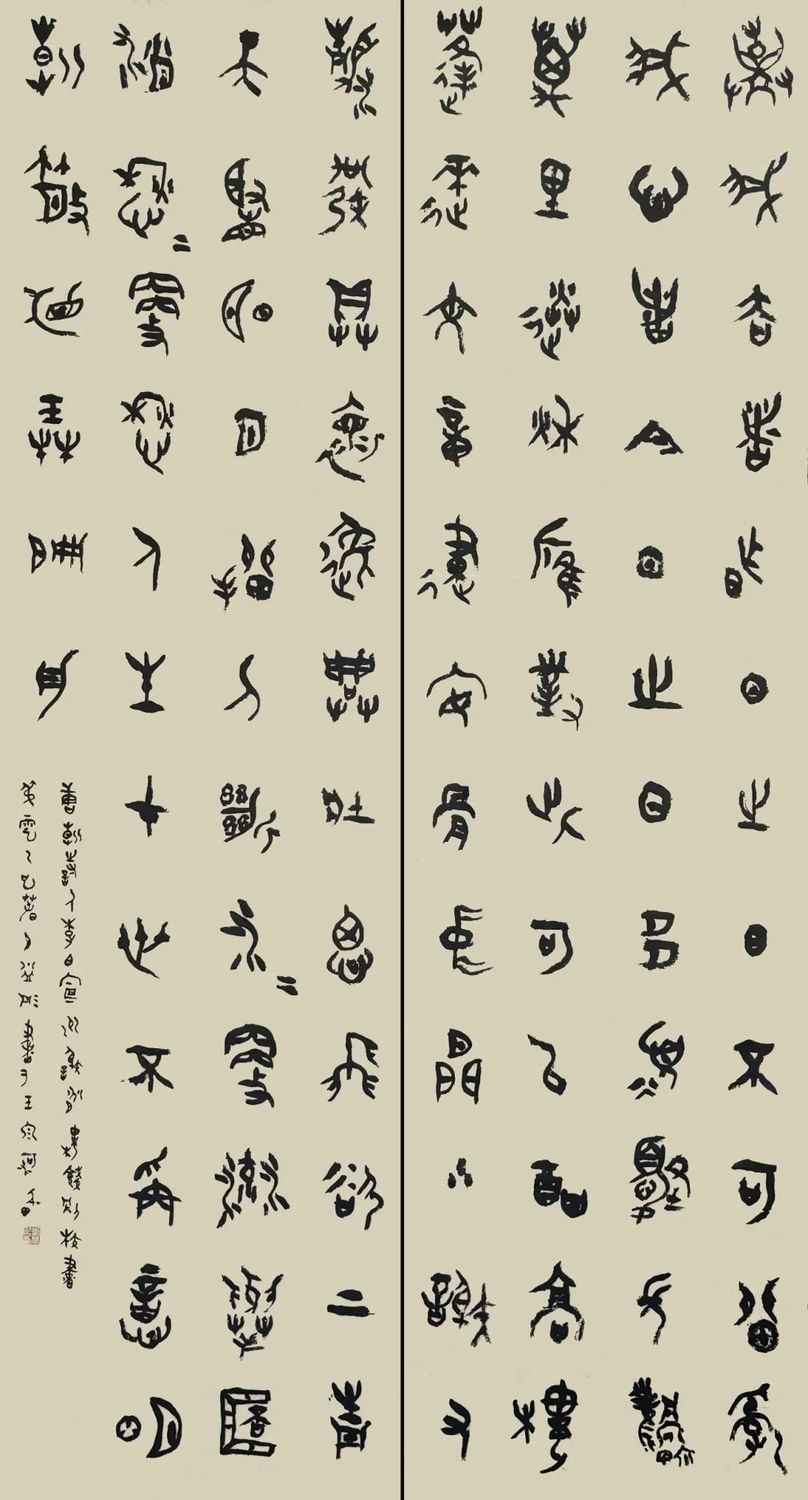 棄我去者昨日之日不可留亂
我心者今日之日多煩憂長風
萬里送秋雁對此可以酣高樓
蓬萊文章建安骨中間小謝又
清發俱懷逸興壯思飛欲上青
天覽明月抽刀斷水=更流舉杯
消愁=更愁人生在世不稱意明
朝散髮弄扁舟
唐朝詩人李白宣州謝朓樓餞別校書
叔雲 書于王